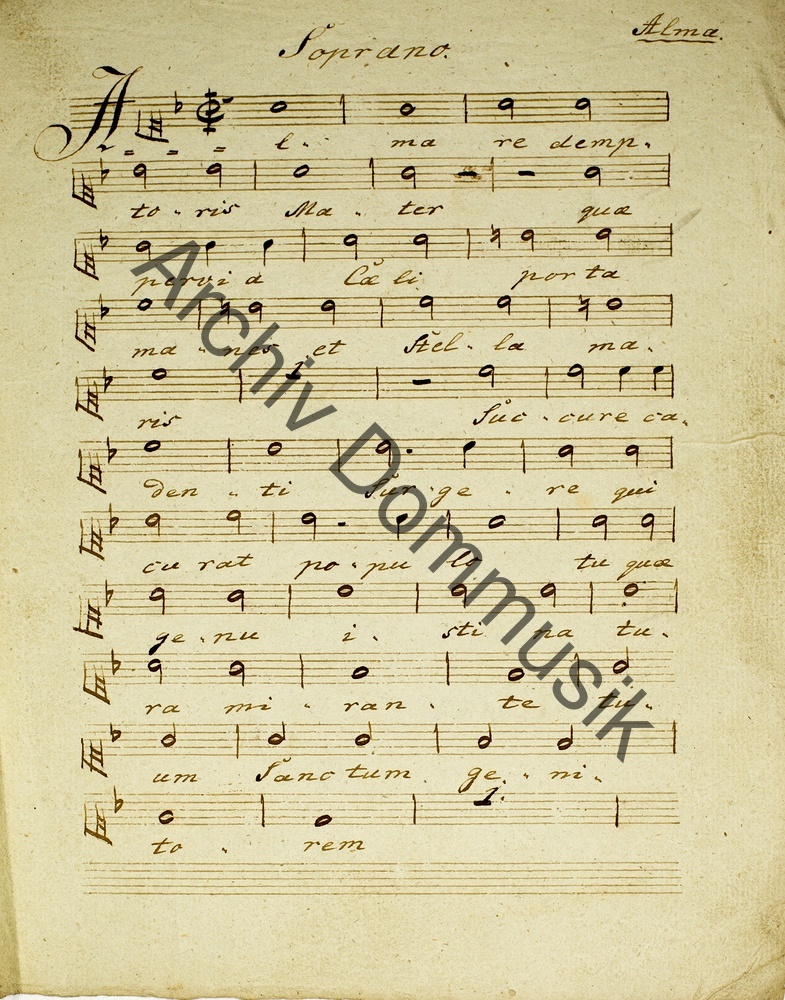 Alma.
Soprano.
Al- ma re demp-
to- ris Ma- ter quæ
pervi a Cœ li por ta
ma- nes et Stel- la ma-
1
ris Suc- cure ca-
den- ti Sur- ge- re qui
cu rat po- pu lo tu quæ
ge- nu i- sti na tu-
ra mi- ran- te tu-
um Sanc tum ge- ni-
1.
to- rem
Archiv Dommusik